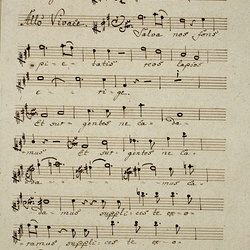 Allo Vivace.
Salva nos fons
pi - e - tatis reos lapsos
e - ri - ge.
Et sur - gentes ne la - da -
ramus Et sur - gentes ne la -
da - mus suppli - ces te ex - o -
ramus suppli - ces te ex - o -